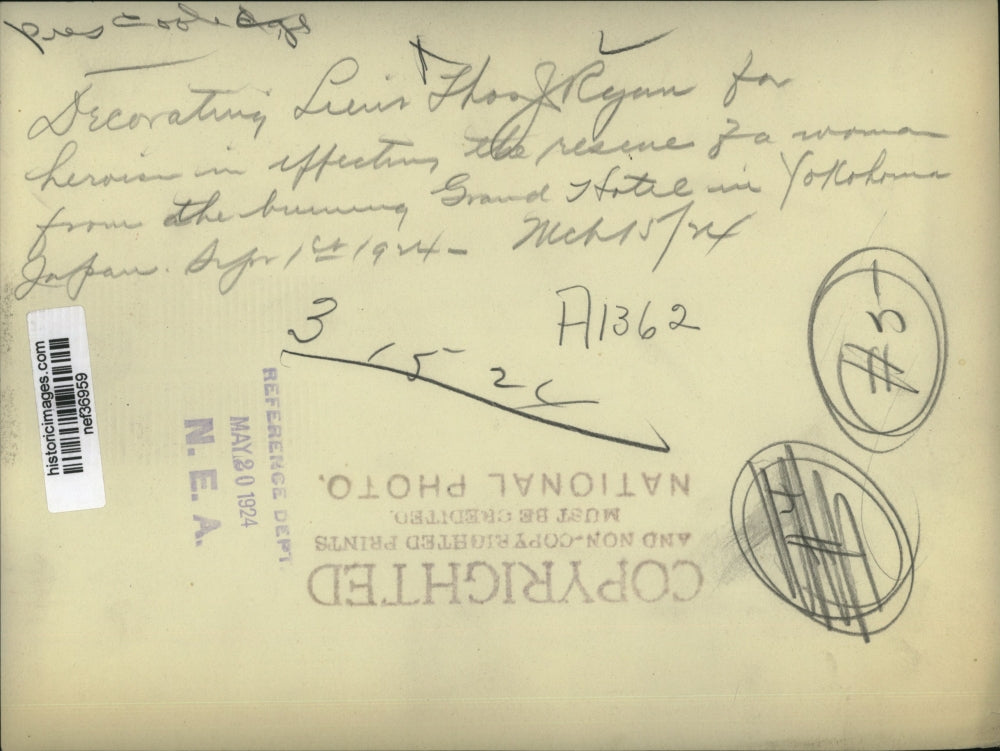 Pres Coolidge
Decorating Lieut Thos J Ryan for
heroism in effecting the rescue of a woman
from the burning Grand Hotel in Yokohoma
Japan. Sept 1st 1924 - Mch 15/24
3
15 2c
A1362
#5
#4
historicimages.com
nef36959
REFERENCE DEPT.
MAY 20 1924
N. E. A.
COPYRIGHTED
AND NON-COPYRIGHTED PRINTS
MUST BE CREDITED.
NATIONAL PHOTO.